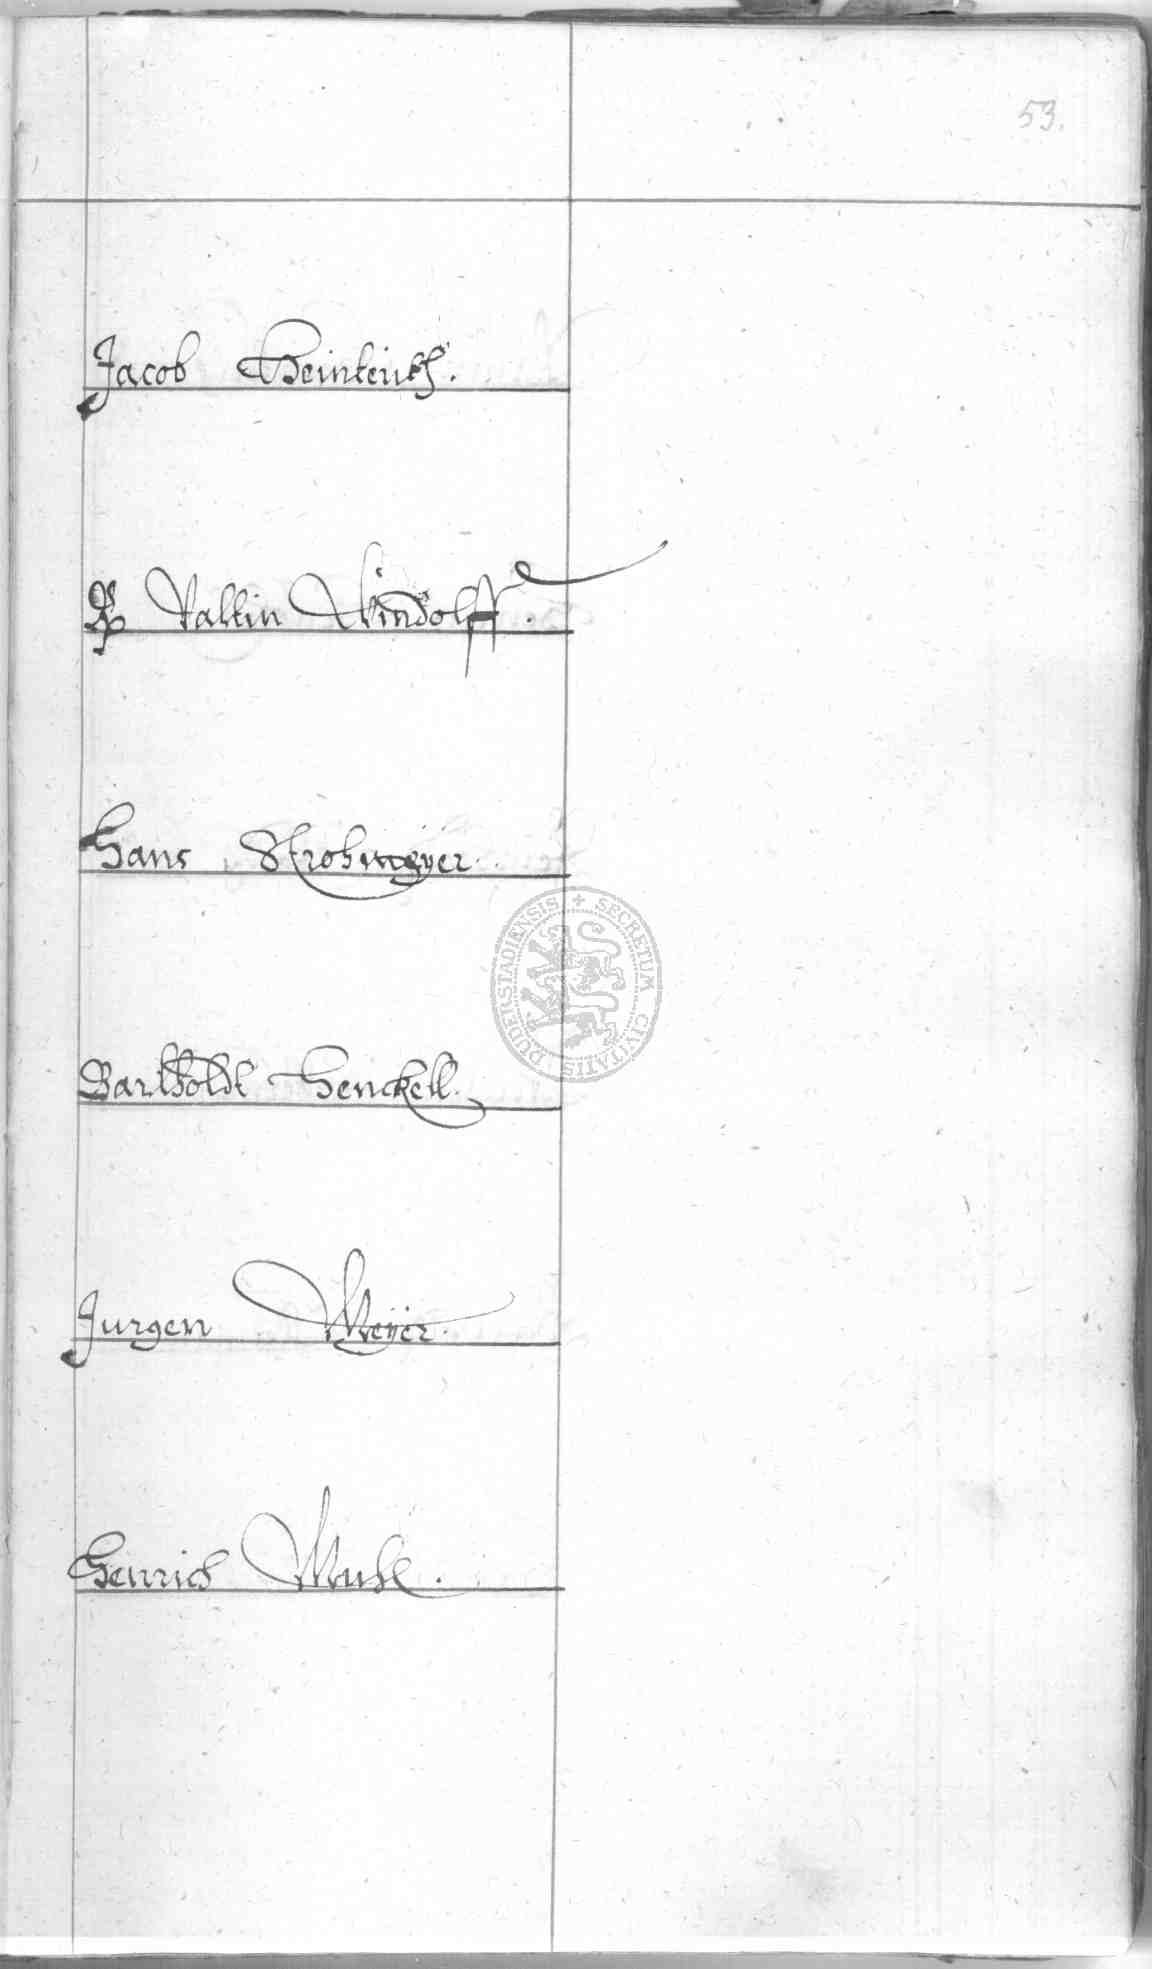 53.
Jacob
Valtin Windolff.
Hans Strohmeyer.
Bartholdt Henckell.
Jurgen Meyer.
Henrich
SECRETUM CIVITATIS DUDERSTADIENSIS